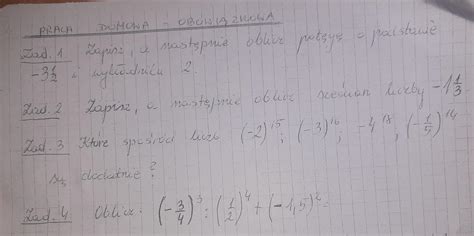 PRACA DOMOWA - OBOWIĄZKOWA
Zad. 1 Zapisz, a następnie oblicz potęgę o podstawie
-3 1/2 i wykładniku 2.
Zad. 2 Zapisz, a następnie oblicz sześcian liczby -1 1/3
Zad. 3 Które spośród liczb (-2)^15 ; (-3)^16 ; -4^18 , (-1/5)^14
są dodatnie?
Zad. 4 Oblicz: (-3/4)^3 : (1/2)^4 + (-1,5)^2 =